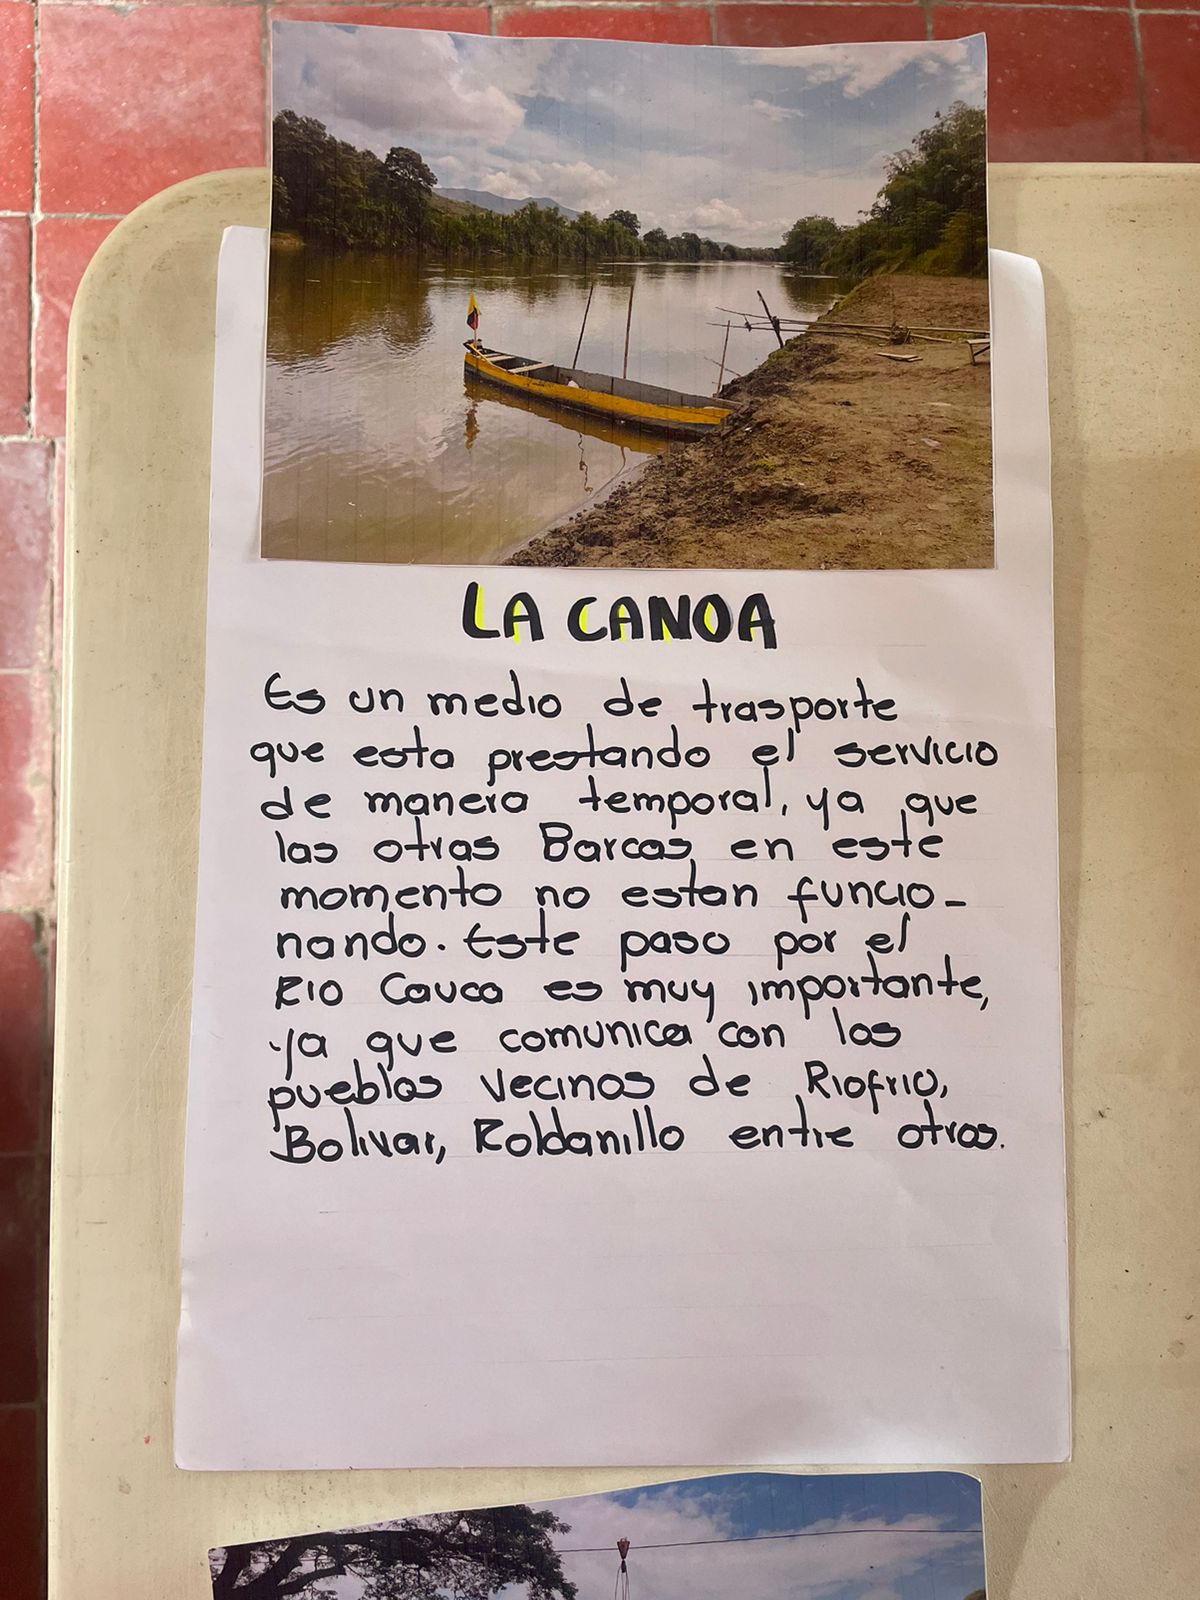 LA CANOA
Es un medio de trasporte
que esta prestando el servicio
de manera temporal, ya que
las otras Barcas, en este
momento no estan funcio-
nando. Este paso por el
RIO Cauca es muy importante,
ya que comunica con los
pueblos vecinos de Riofrio,
Bolivar, Roldanillo entre otros.